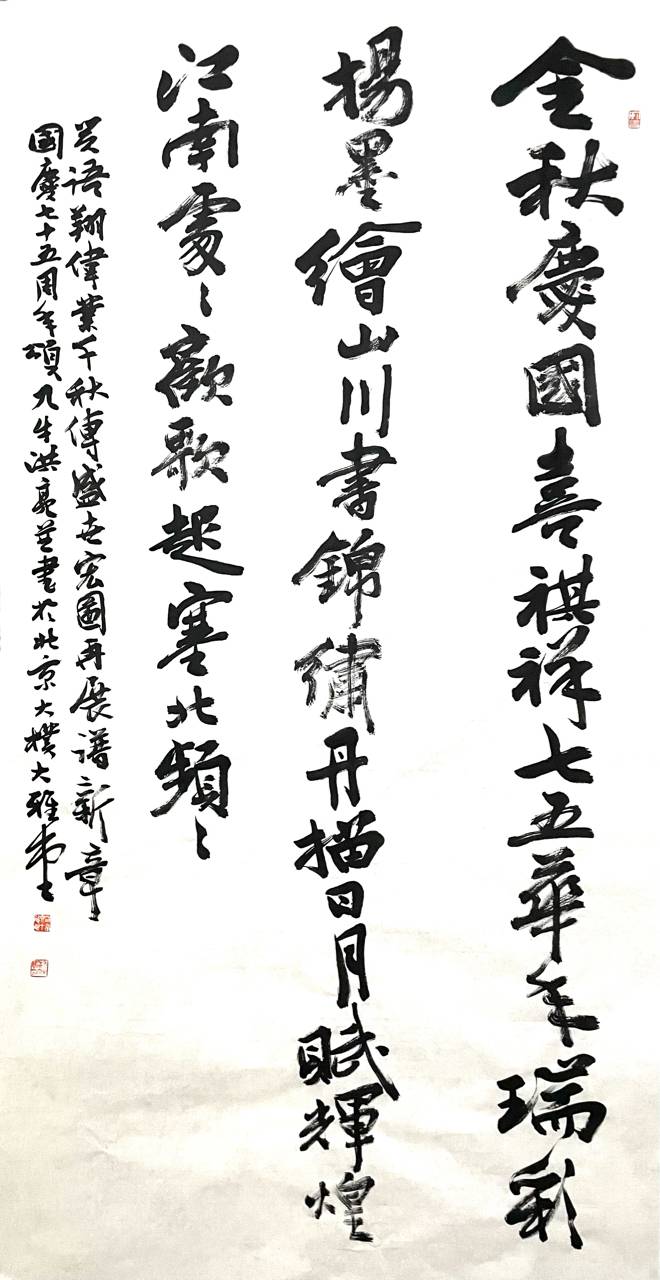 金秋慶國喜祺祥七五華年瑞彩
揚墨繪山川書錦繡丹描日月賦輝煌
江南處〻歡歌起塞北頻〻
笑語翔偉業千秋傳盛世宏圖再展譜新章
國慶七十五周年頌九牛洪亮並書於北京大樸大雅堂